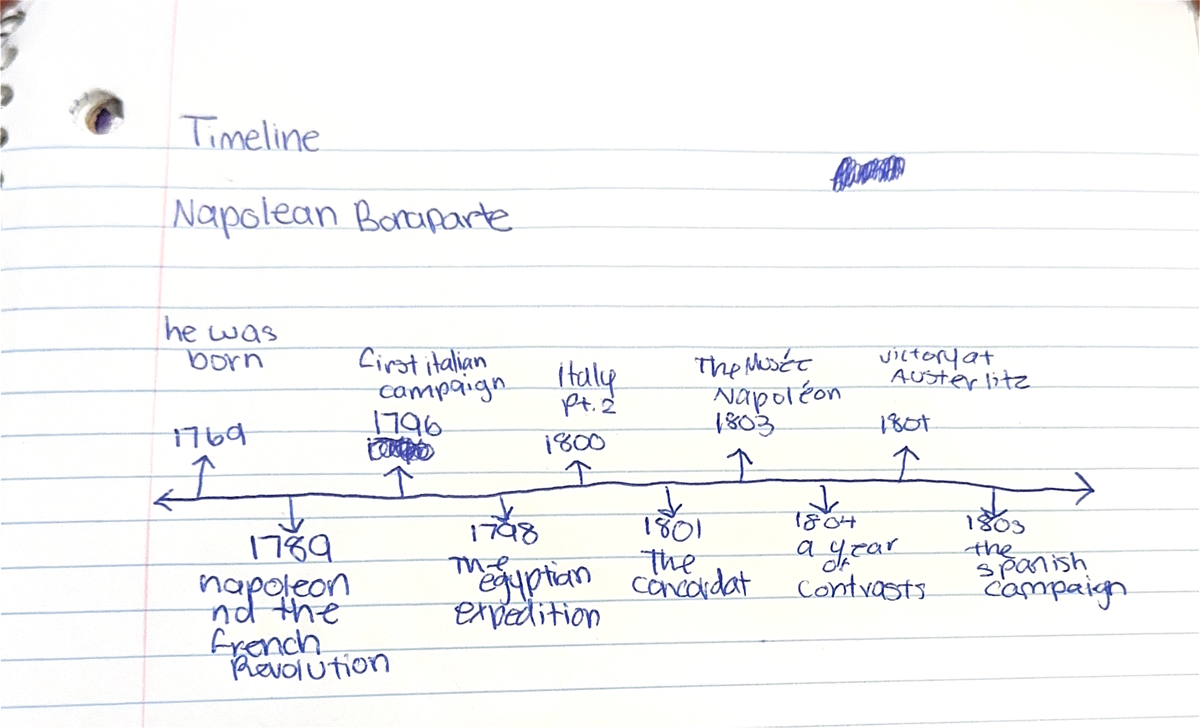 Timeline
Napolean Bonaparte
he was
born
1769
first italian
campaign
1796
Italy
Pt.2
1800
The Musée
Napoléon
1803
victory at
Austerlitz
1789
napoleon
nd the
french
Revolution
1798
The
egyptian
expedition
1801
The
concordat
1804
a year
of
contrasts
the
spanish
campaign